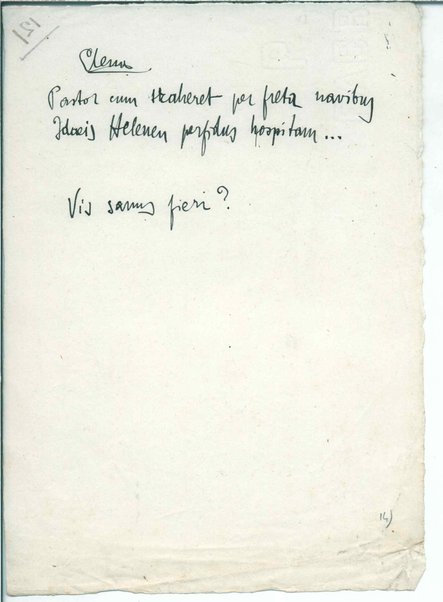 121
Elena
Pastor cum traheret per freta navibus
Idaeis Helenen perfidus hospitam...
Vis sanus fieri?
14)